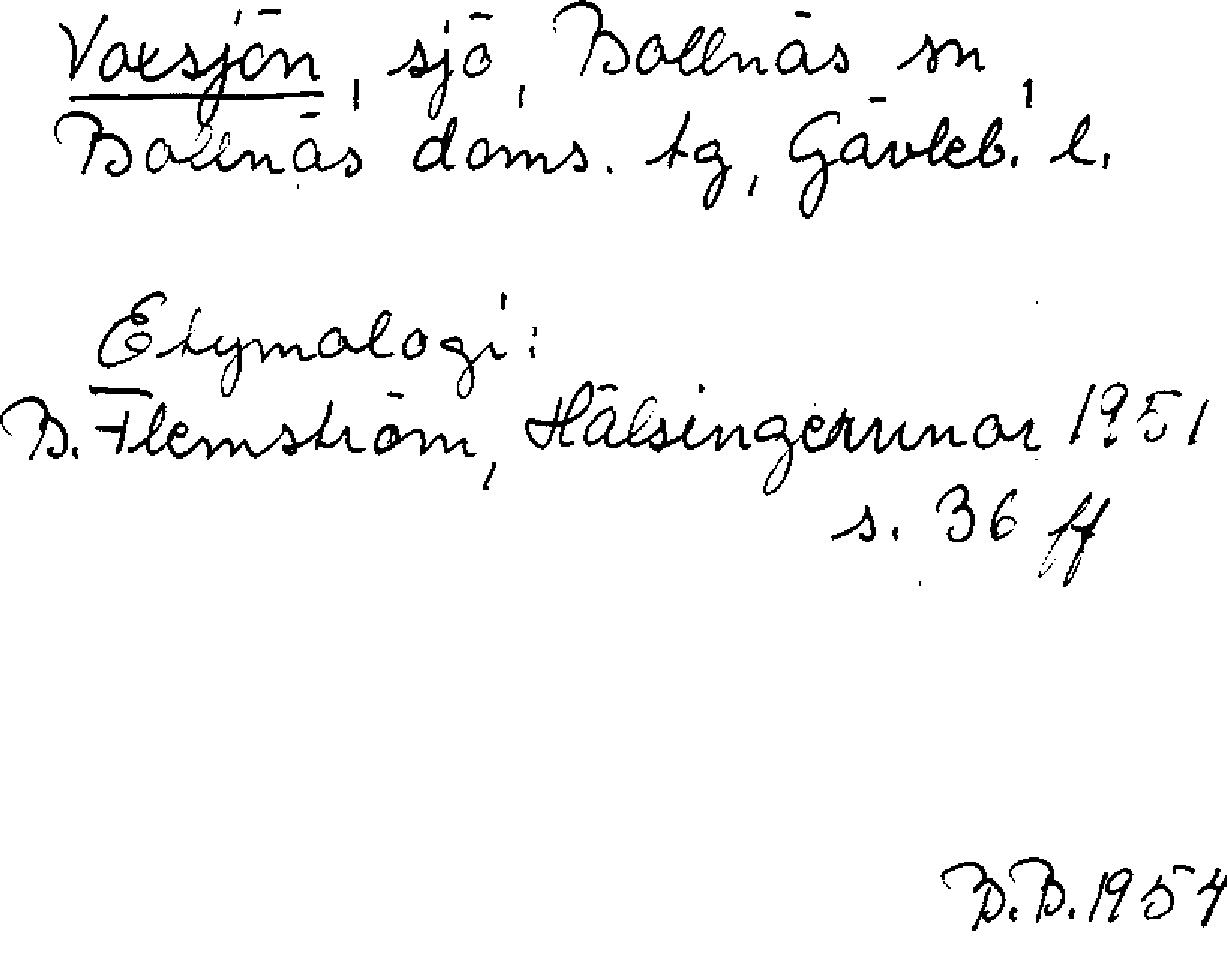 Voxsjön, sjö, Bollnäs sn,
Bollnäs doms. tg, Gävleb. l.
Etymologi:
B. Flemström, Hälsingerunor 1951
s. 36 ff
B.B. 1954